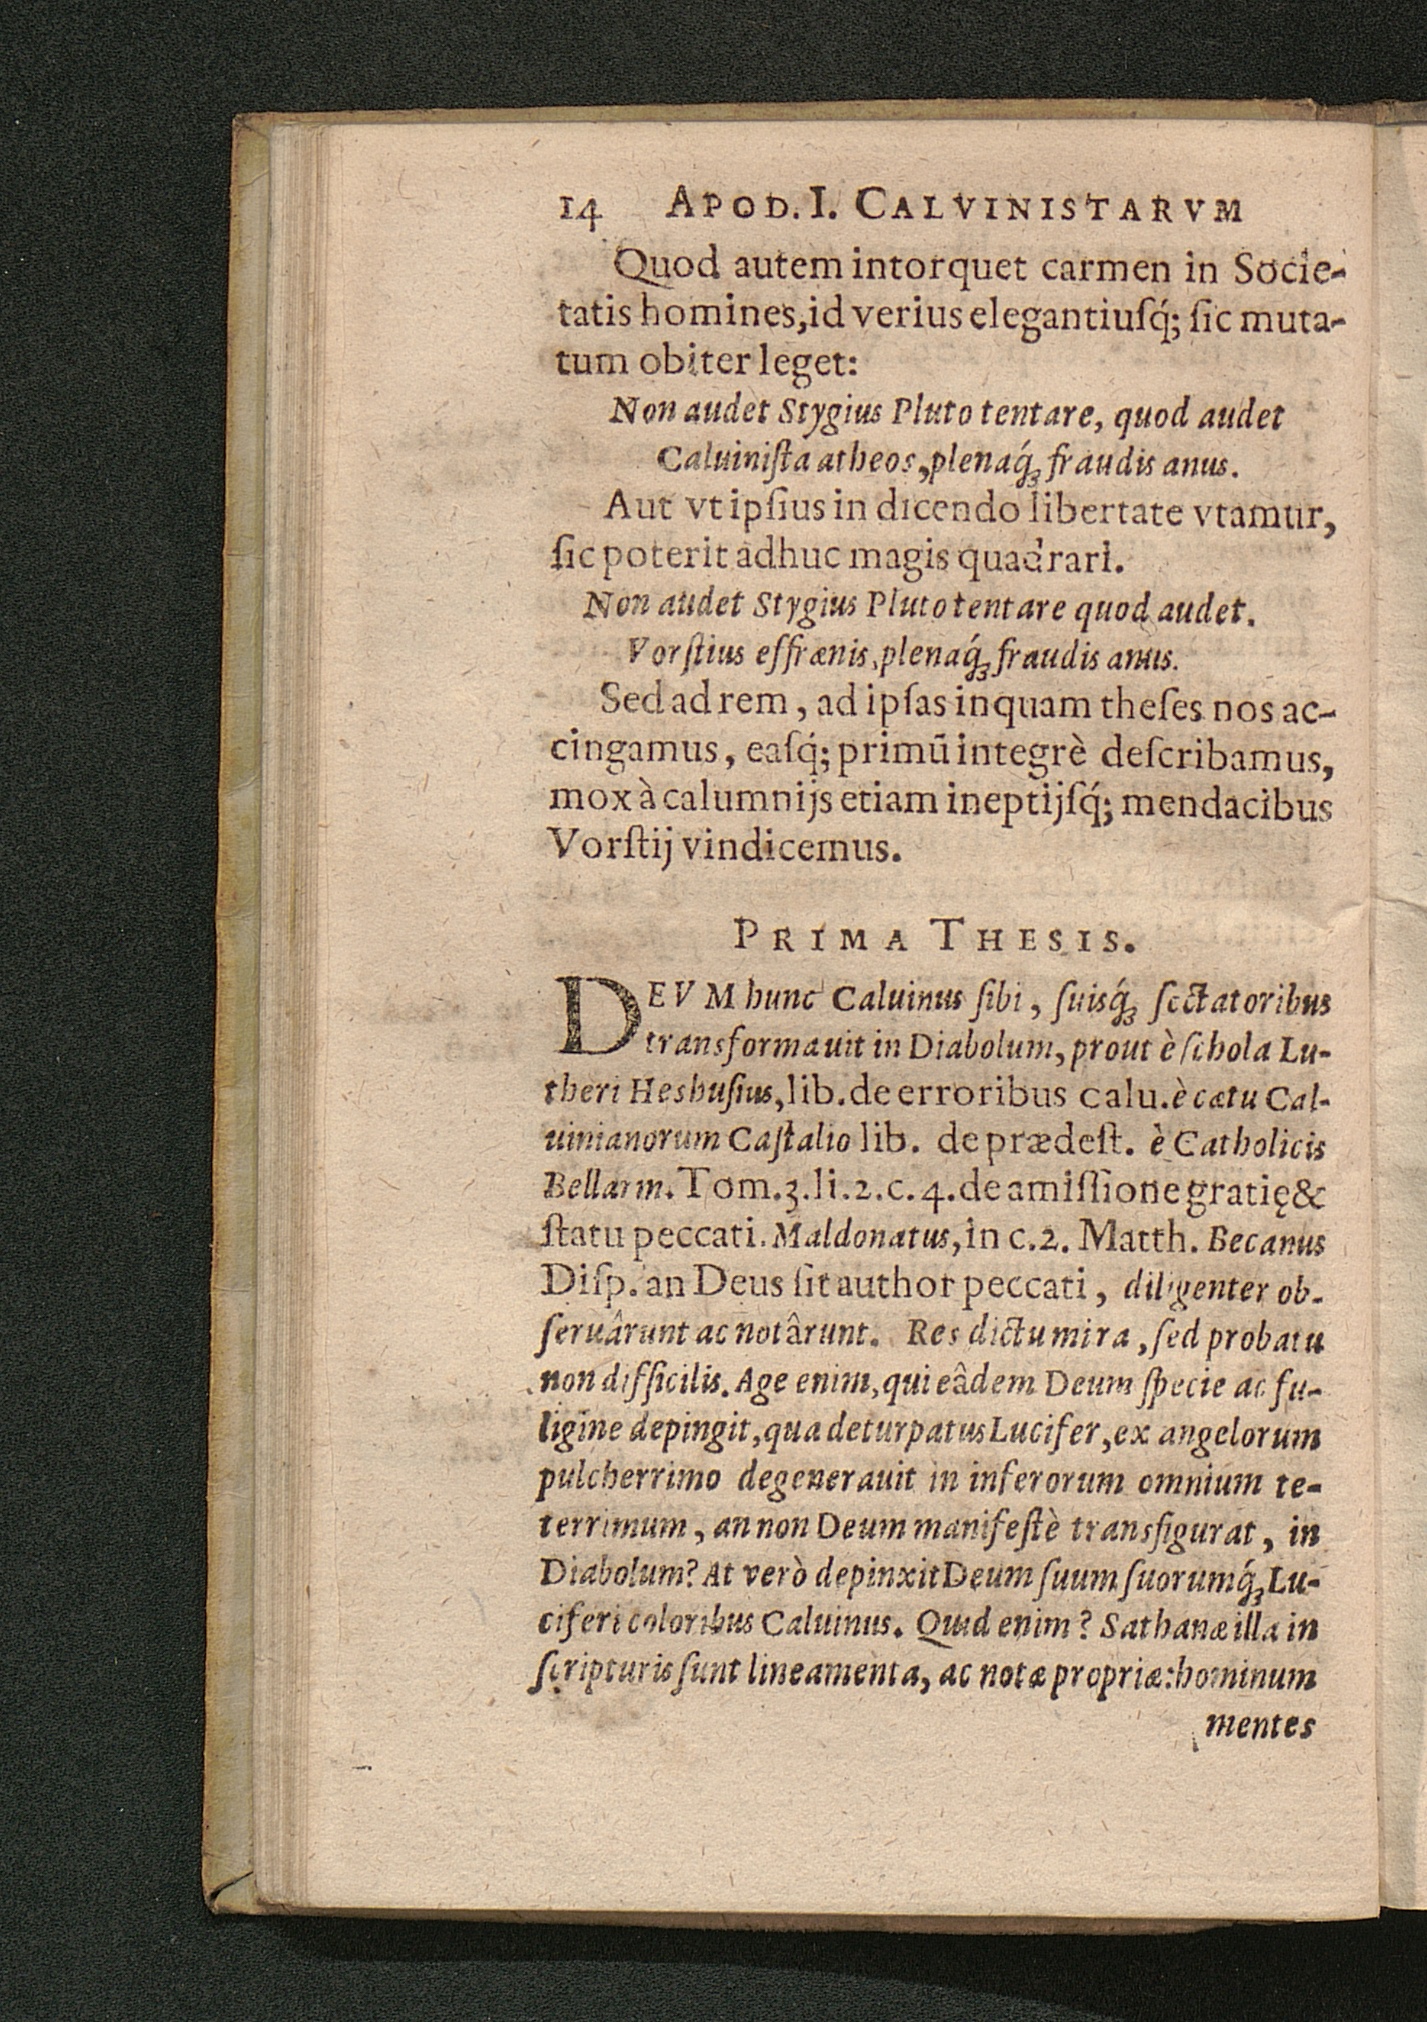 14 APOD. I. CALVINISTARVM
Quod autem intorquet carmen in Socie-
tatis homines, id verius elegantiusq́; sic muta-
tum obiter leget:
Non audet Stygius Pluto tentare, quod audet
Caluiniſta atheos, plenaq́ꝫ fraudis anus.
Aut vt ipſius in dicendo libertate vtamur,
ſic poterit adhuc magis quadrari.
Non audet Stygius Pluto tentare quod audet.
Vorſtius effrænis, plenaq́ꝫ fraudis anus.
Sed ad rem, ad ipſas inquam theſes nos ac-
cingamus, eaſq́; primū integrè deſcribamus,
mox à calumnijs etiam ineptijſq́; mendacibus
Vorſtij vindicemus.
PRIMA THESIS.
DEVM hunc Caluinus ſibi, ſuisq́ꝫ ſectatoribus
transformauit in Diabolum, prout è ſchola Lu-
theri Heshuſius, lib. de erroribus calu. è cætu Cal-
uinianorum Caſtalio lib. de prædeſt. è Catholicis
Bellarm. Tom. 3. li. 2. c. 4. de amiſſione gratię &
ſtatu peccati. Maldonatus, in c. 2. Matth. Becanus
Diſp. an Deus ſit author peccati, diligenter ob-
ſeruârunt ac notârunt. Res dictu mira, ſed probatu
non difficilis. Age enim, qui eâdem Deum ſpecie ac fu-
ligine depingit, qua deturpatus Lucifer, ex angelorum
pulcherrimo degenerauit in inferorum omnium te-
terrimum, an non Deum manifeſtè transfigurat, in
Diabolum? At verò depinxit Deum ſuum ſuorumq́ꝫ, Lu-
ciferi coloribus Caluinus. Quid enim? Sathanæ illa in
ſcripturis ſunt lineamenta, ac notæ propriæ: hominum
mentes